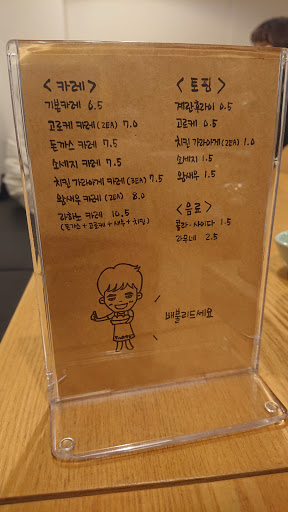 <카레>
기본카레 6.5
고로케 카레(2EA) 7.0
돈가스 카레 7.5
소세지 카레 7.5
치킨 가라아게 카레(3EA) 7.5
왕새우 카레(2EA) 8.0
카레 10.5
(돈가스+고로케+새우+치킨)
<토핑>
계란후라이 0.5
고로케 0.5
치킨 가라아게(2EA) 1.0
소세지 1.5
왕새우 1.5
<음료>
콜라·사이다 1.5
라무네 2.5
배불리드세요